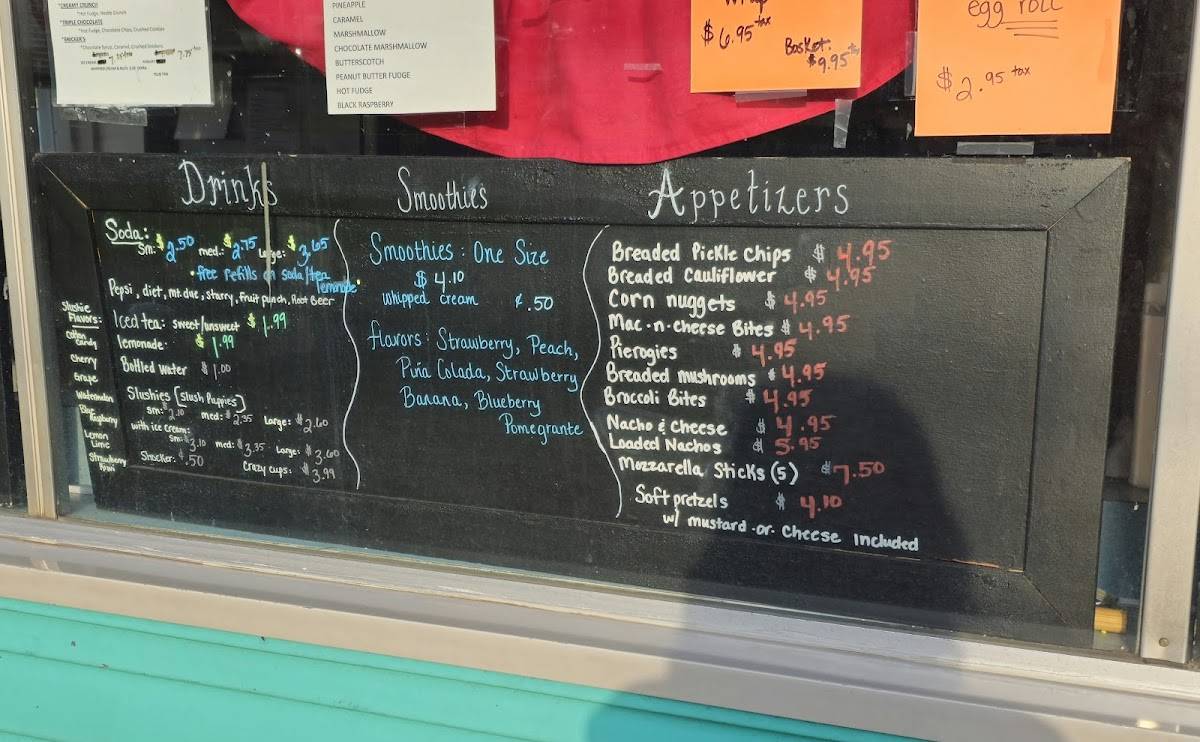 *CREAMY CRUNCH
*Hot Fudge, Heath Crunch
*TRIPLE CHOCOLATE
*Hot Fudge, Chocolate Chips, Crushed Cookies
*SNICKER'S
*Chocolate Syrup, Caramel, Crushed Snickers
PINEAPPLE
CARAMEL
MARSHMALLOW
CHOCOLATE MARSHMALLOW
BUTTERSCOTCH
PEANUT BUTTER FUDGE
HOT FUDGE
BLACK RASPBERRY
$6.95 tax
Basket:
$9.95 tax
egg roll
$2.95 tax
Drinks
Soda:
Sm: $2.50 med.: $2.75 large: $3.65
• free refills on soda/tea
lemonade •
Pepsi, diet, mt. due, starry, fruit punch, Root Beer
Iced tea: sweet/unsweet $1.99
lemonade: $1.99
Bottled water $1.00
Slushies [slush Puppies]
sm: $2.10 med: $2.35 Large: $2.60
with ice cream:
sm: $3.10 med: $3.35 Large: $3.60
Shocker: $.50 Crazy cups: $3.99
Slushie
Flavors:
Cotton
Candy
Cherry
Grape
Watermelon
Blue
Raspberry
Lemon
Lime
Strawberry
Kiwi
Smoothies
Smoothies: One Size
$4.10
whipped cream ¢.50
flavors: Strawberry, Peach,
Piña Colada, Strawberry
Banana, Blueberry
Pomegrante
Appetizers
Breaded Pickle Chips $4.95
Breaded Cauliflower $4.95
Corn nuggets $4.95
Mac-n-cheese Bites $4.95
Pierogies $4.95
Breaded mushrooms $4.95
Broccoli Bites $4.95
Nacho & Cheese $4.95
Loaded Nachos $5.95
Mozzarella Sticks (5) $7.50
Soft pretzels $4.10
w/ mustard -or- Cheese Included